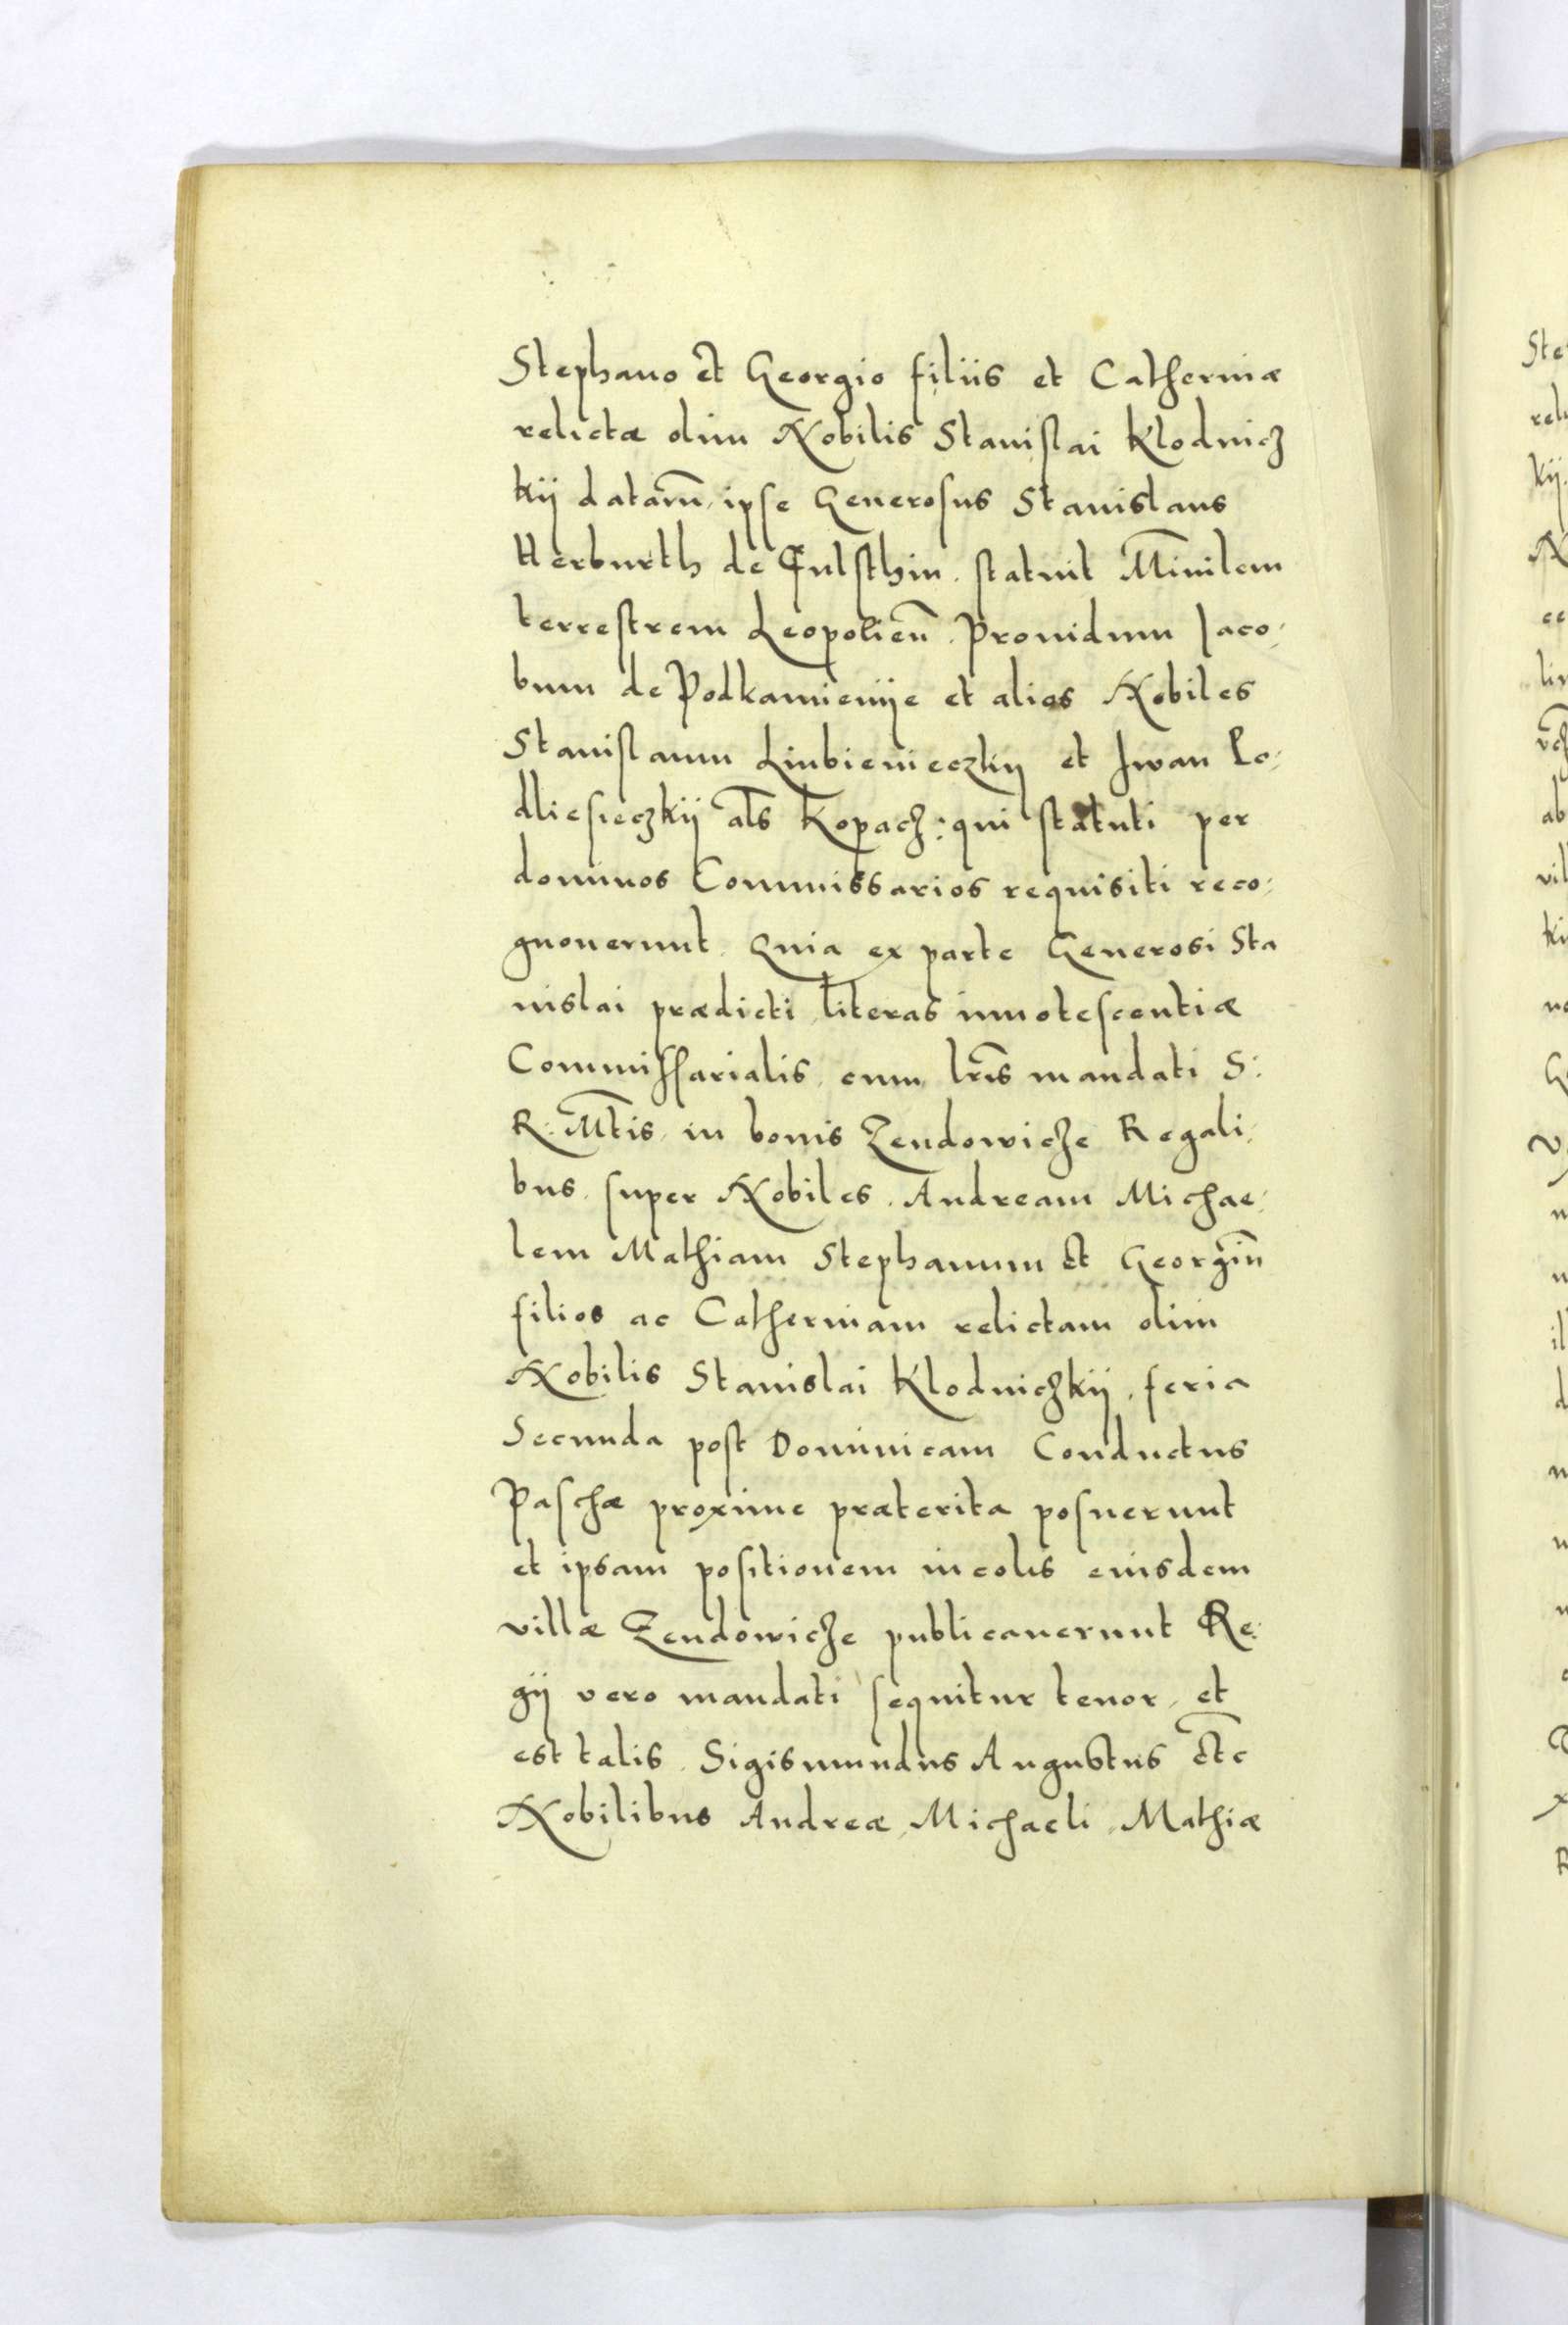 Stephano et Georgio filiis et Catherinæ
relictæ olim Nobilis Stanislai Klodnicz
kij datarū, ipse Generosus Stanislaus
Herburth de Fulsthin. statuit Mīnilem
terrestrem Leopolieñ. Prouidum Jaco:
bum de Podkamienije et alios Nobiles
Stanislaum Liubienieczkij et Iwan Po:
dliesieczkij als Kopacz: qui statuti per
dominos Commissarios requisiti reco:
gnouerunt. Quia ex parte Generosi Sta
nislai prædicti literas innotescentiæ
Commissarialis, cum lr̄is mandati S:
R: Mt̄is, in bonis Zendowicze Regali:
bus, super Nobiles. Andream Michae:
lem Mathiam Stephanum et Georgiū
filios ac Catherinam relictam olim
Nobilis Stanislai Klodniczkij, feria
Secunda post Dominicam Conductus
Paschæ proxime præterita posuerunt
et ipsam positionem incolis eiusdem
villæ Zendowicze publicauerunt Re:
gij vero mandati sequitur tenor, et
est talis. Sigismundus Augustus etc
Nobilibus Andreæ, Michaeli, Mathiæ
Ste
rel
kij
N
li
ab
vil
ki
G
R